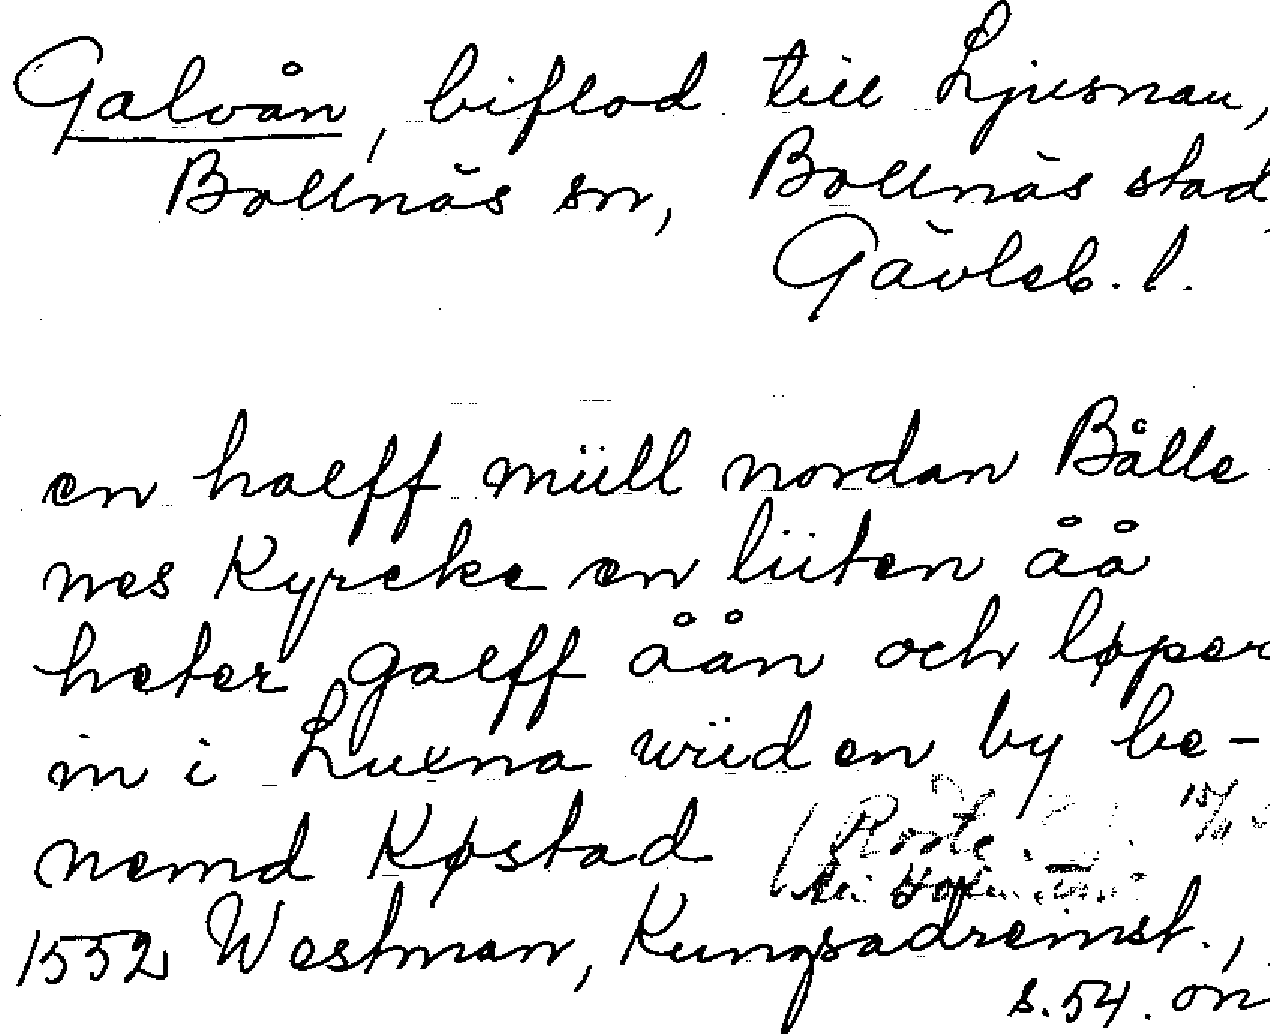 Galvån, biflod till Ljusnan,
Bollnäs sn, Bollnäs stad,
Gävleb. l.
en halff müll nordan Bålle
nes Kyrcke en liiten åå
heter galff åån och løper
in i Luxna wiid en by be-
nemd Køstad (Roste
1552 Westman, Kungsådreinst.,
s. 54. on